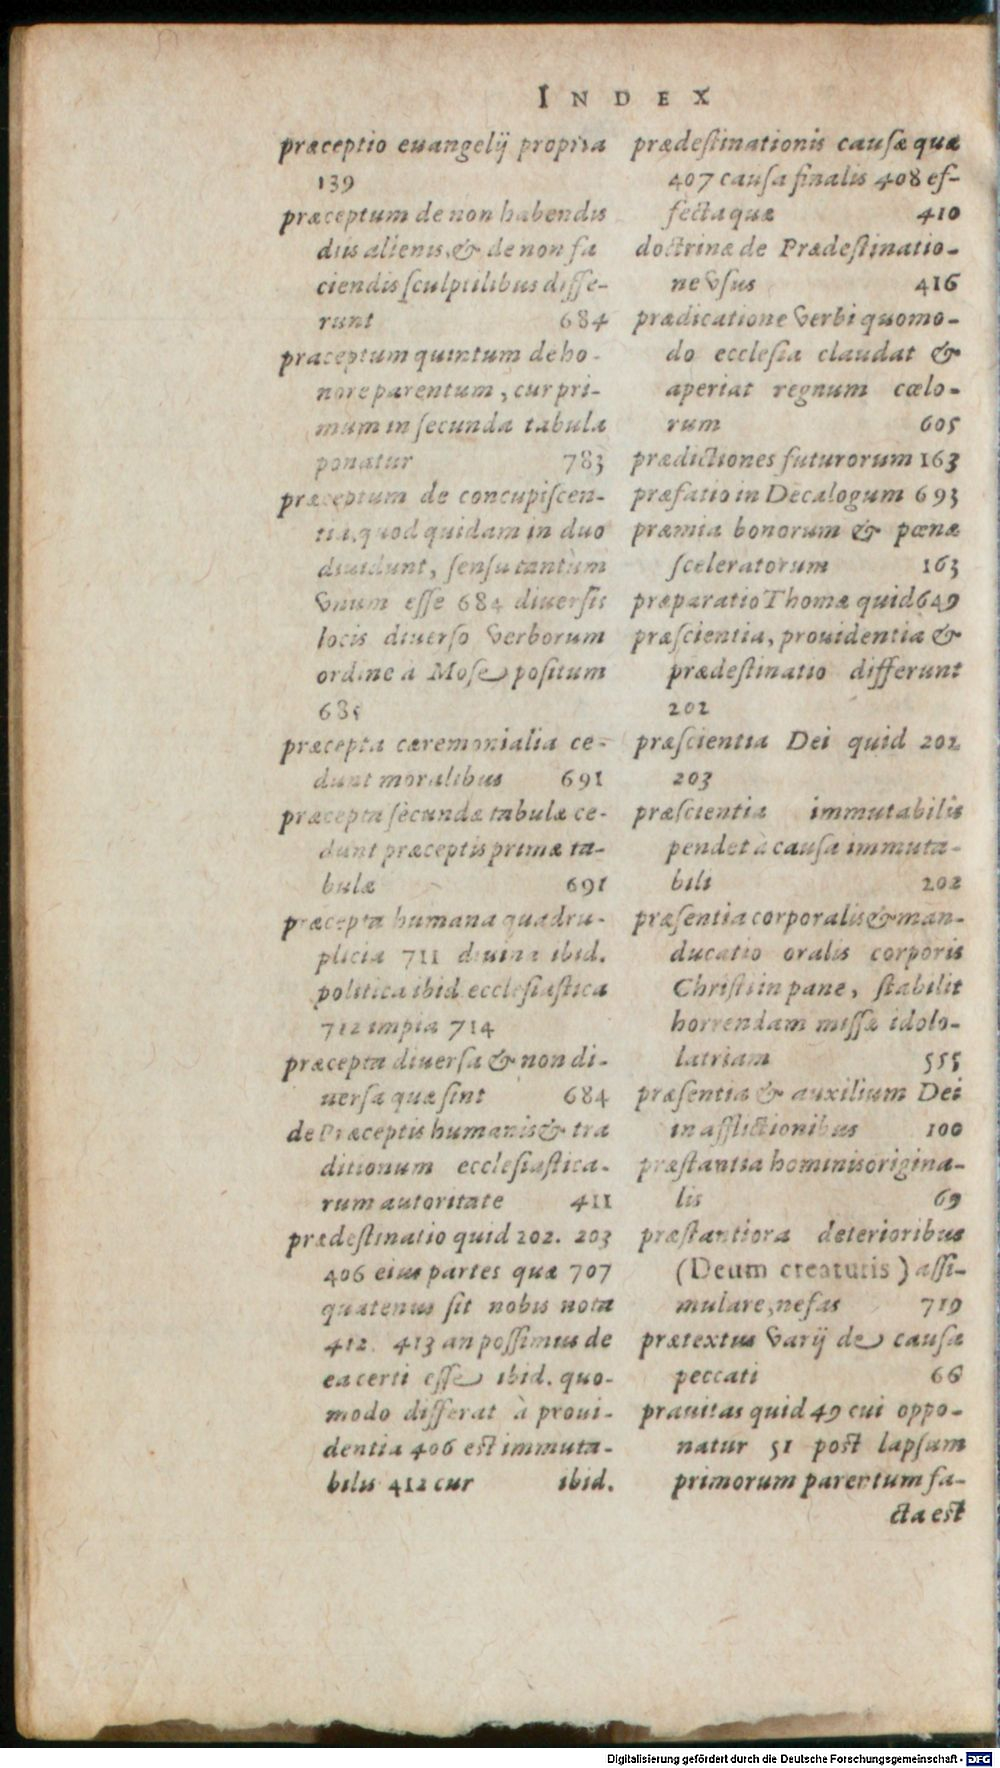 INDEX
præceptio euangelij propria
139
præceptum de non habendis
diis alienis, & de non fa
ciendis sculptilibus diffe-
runt 684
præceptum quintum de ho-
nore parentum, cur pri-
mum in secunda tabula
ponatur 783
præceptum de concupiscen-
tia, quod quidam in duo
diuidunt, sensu tantùm
vnum esse 684 diuersis
locis diuerso verborum
ordine à Mose positum
685
præcepta cæremonialia ce-
dunt moralibus 691
præcepta secundæ tabulæ ce-
dunt præceptis primæ ta-
bulæ 691
præcepta humana quadru-
plicia 711 diuina ibid.
politica ibid. ecclesiastica
712 impia 714
præcepta diuersa & non di-
uersa quæ sint 684
de Præceptis humanis & tra
ditionum ecclesiastica-
rum autoritate 411
prædestinatio quid 202. 203
406 eius partes quæ 707
quatenus sit nobis nota
412. 413 an possimus de
ea certi esse ibid. quo-
modo differat à proui-
dentia 406 est immuta-
bilis 412 cur ibid.
prædestinationis causæ quæ
407 causa finalis 408 ef-
fecta quæ 410
doctrinæ de Prædestinatio-
ne vsus 416
prædicatione verbi quomo-
do ecclesia claudat &
aperiat regnum cœlo-
rum 605
prædictiones futurorum 163
præfatio in Decalogum 693
præmia bonorum & pœnæ
sceleratorum 163
præparatio Thomæ quid 649
præscientia, prouidentia &
prædestinatio differunt
202
præscientia Dei quid 202
203
præscientia immutabilis
pendet à causa immuta-
bili 202
præsentia corporalis & man-
ducatio oralis corporis
Christi in pane, stabilit
horrendam missæ idolo-
latriam 555
præsentia & auxilium Dei
in afflictionibus 100
præstantia hominis origina-
lis 69
præstantiora deterioribus
(Deum creaturis) assi-
mulare, nefas 719
prætextus varij de causa
peccati 66
prauitas quid 49 cui oppo-
natur 51 post lapsum
primorum parentum fa-
cta est
Digitalisierung gefördert durch die Deutsche Forschungsgemeinschaft - DFG